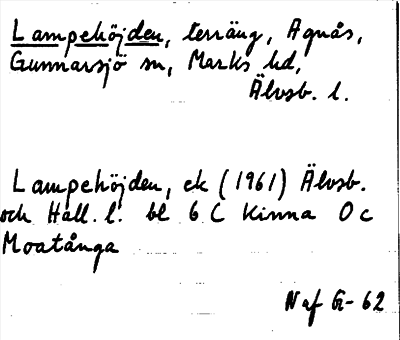 Lampehöjden, terräng, Agnås,
Gunnarsjö sn, Marks hd,
Älvsb. l.
Lampehöjden, ek (1961) Älvsb.
och Hall. l. bl 6 C Kinna 0 c
Moatånga
N af G-62